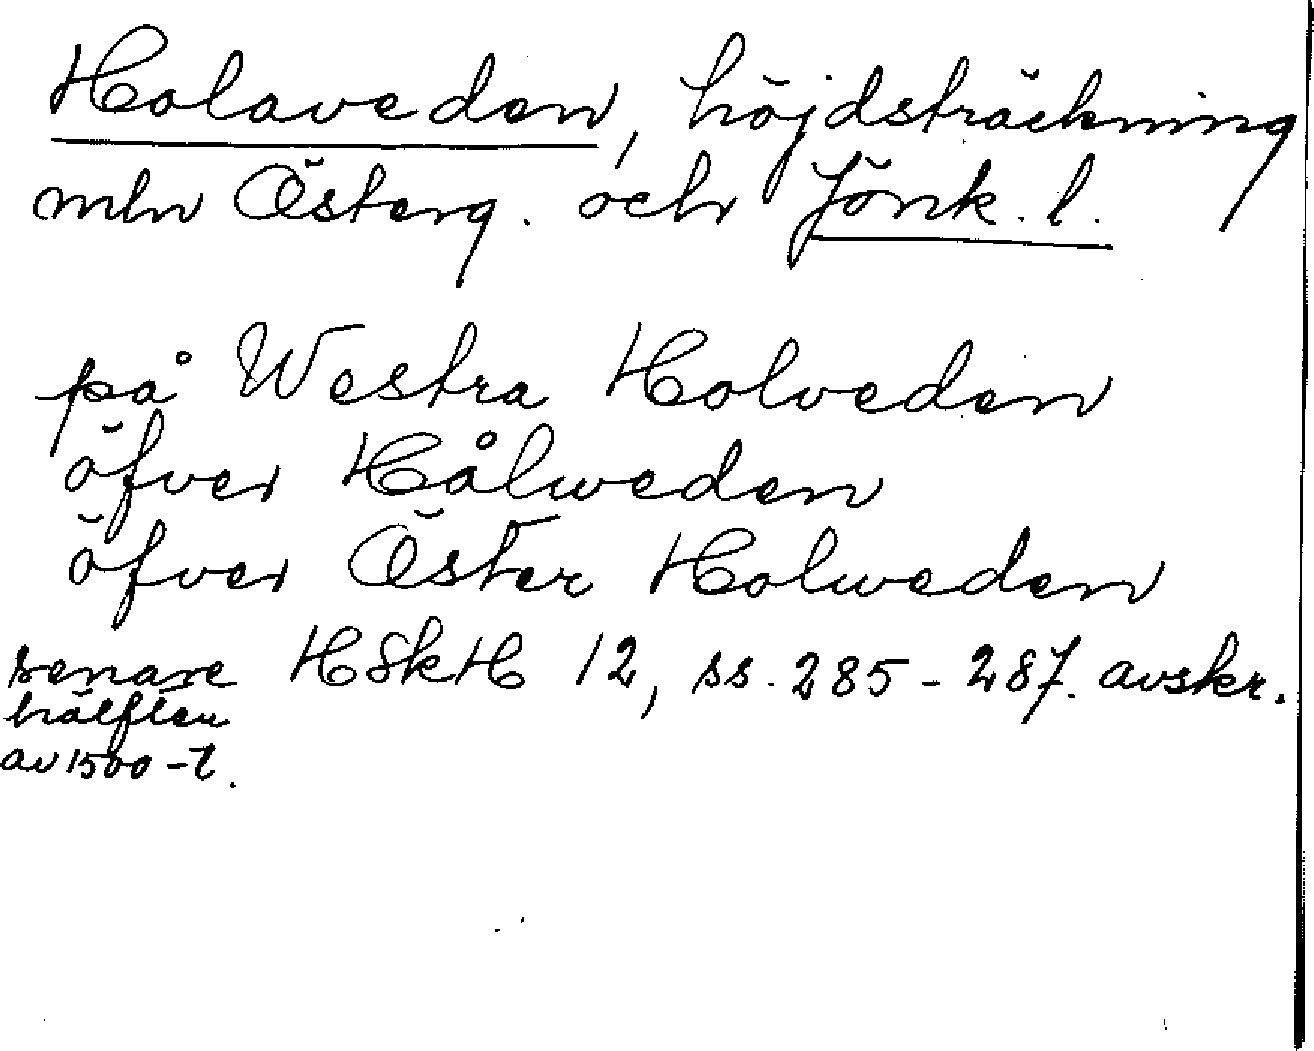 Holaveden, höjdsträckning
mln Österg. och Jönk. l.
på Westra Holveden
öfver Hålweden
öfver Öster Holweden
senare HSkH 12, ss. 285-287. avskr.
hälften
av 1500-t.